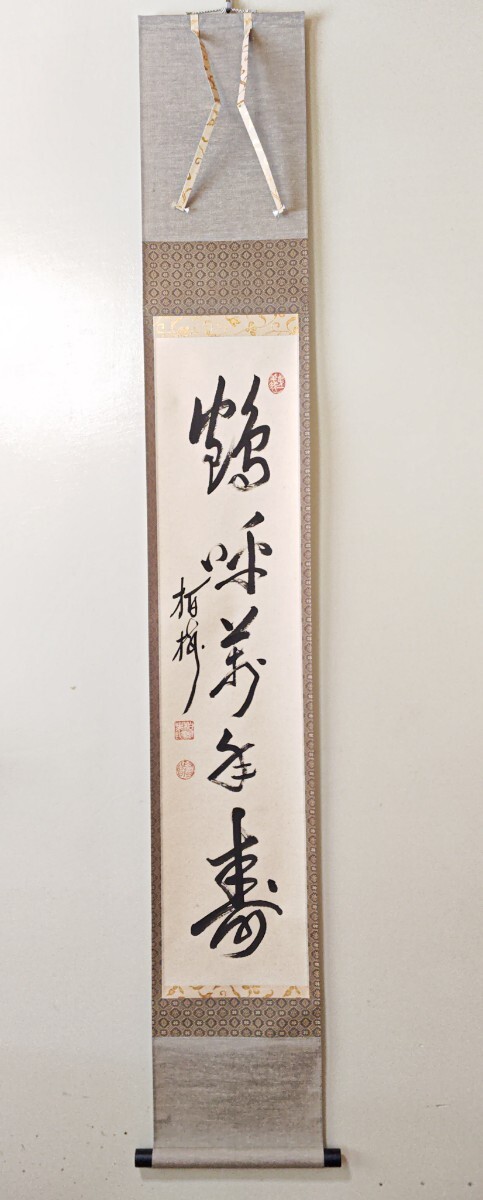 鶴呼萬年壽
柏樹